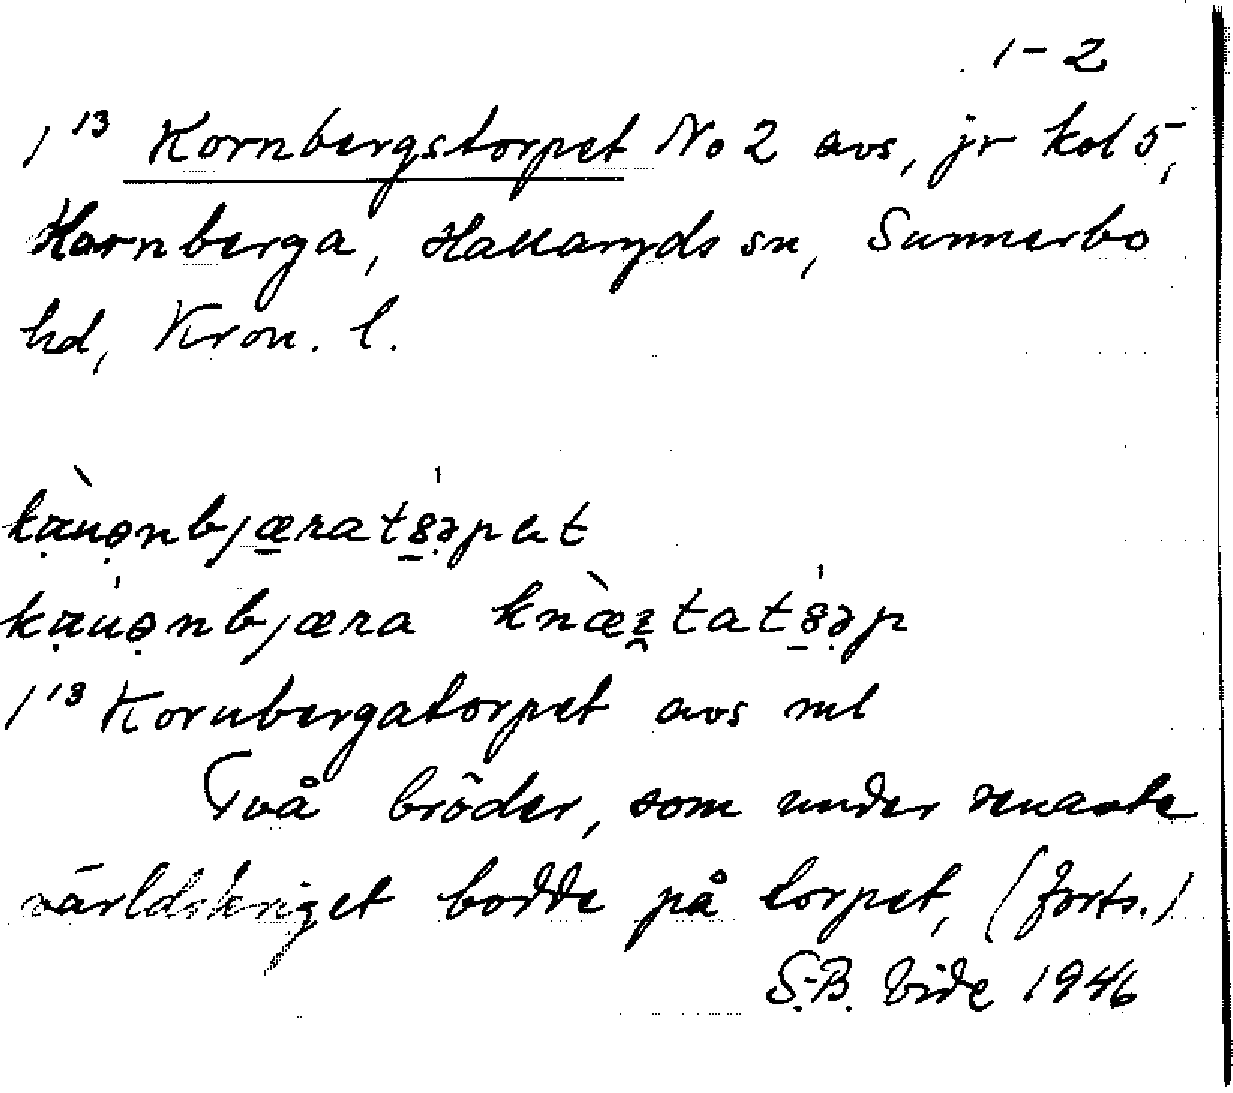 1-2
1¹³ Kornbergstorpet No 2 avs, jr kol 5,
Hornberga, Hallaryds sn, Sunnerbo
hd, Kron. l.
1¹³ Kornbergatorpet avs ml
Två bröder, som under senaste
världskriget bodde på torpet, (forts.)
S.-B. Vide 1946